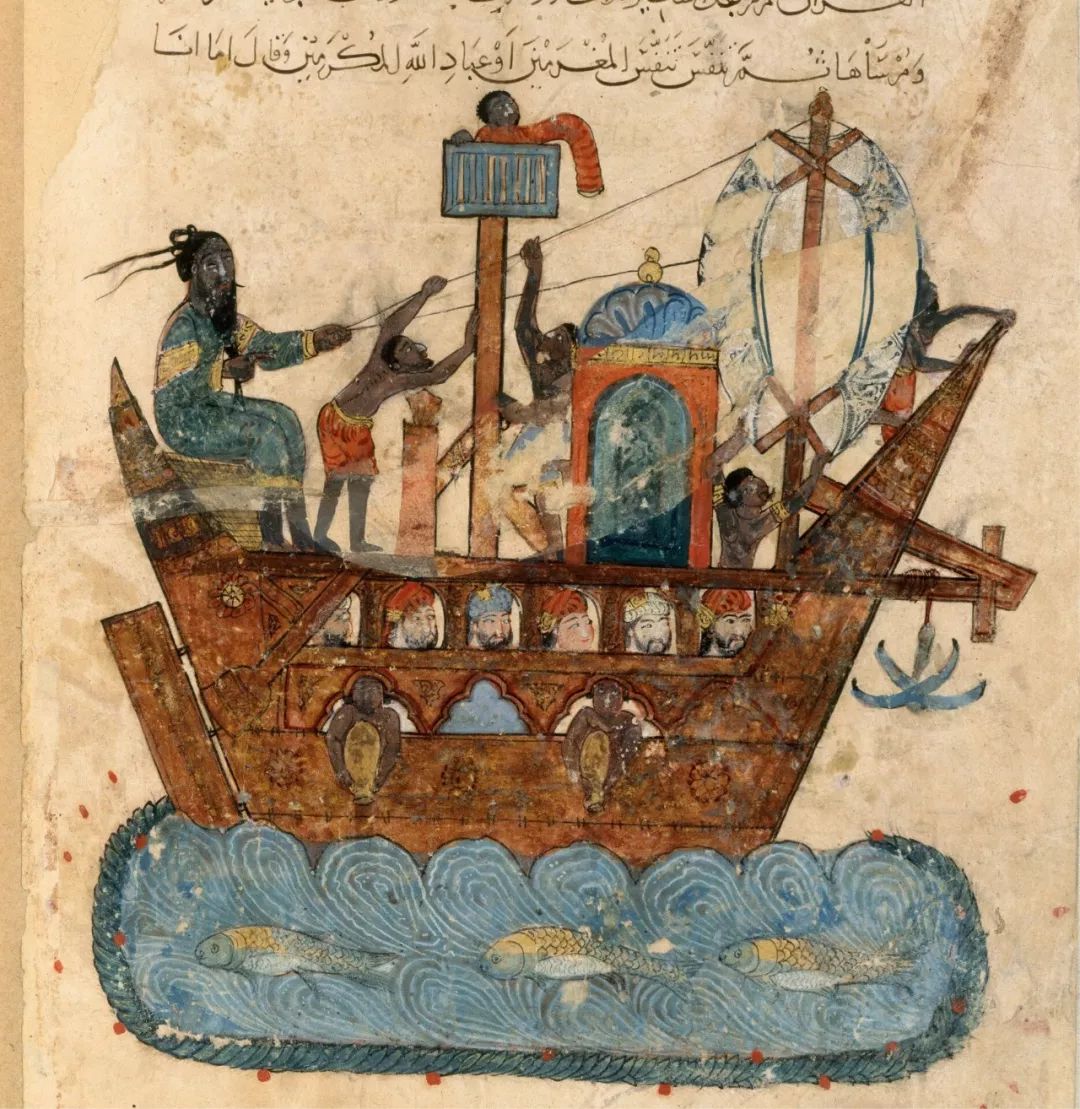 وَمُرْسَاهَا ثُمَّ تَنَفَّسَ تَنَفُّسَ المُغْرَمِيْنَ اَوْ عِبَادِ اللهِ المُكْرَمِيْنَ وَقَالَ اما انَا